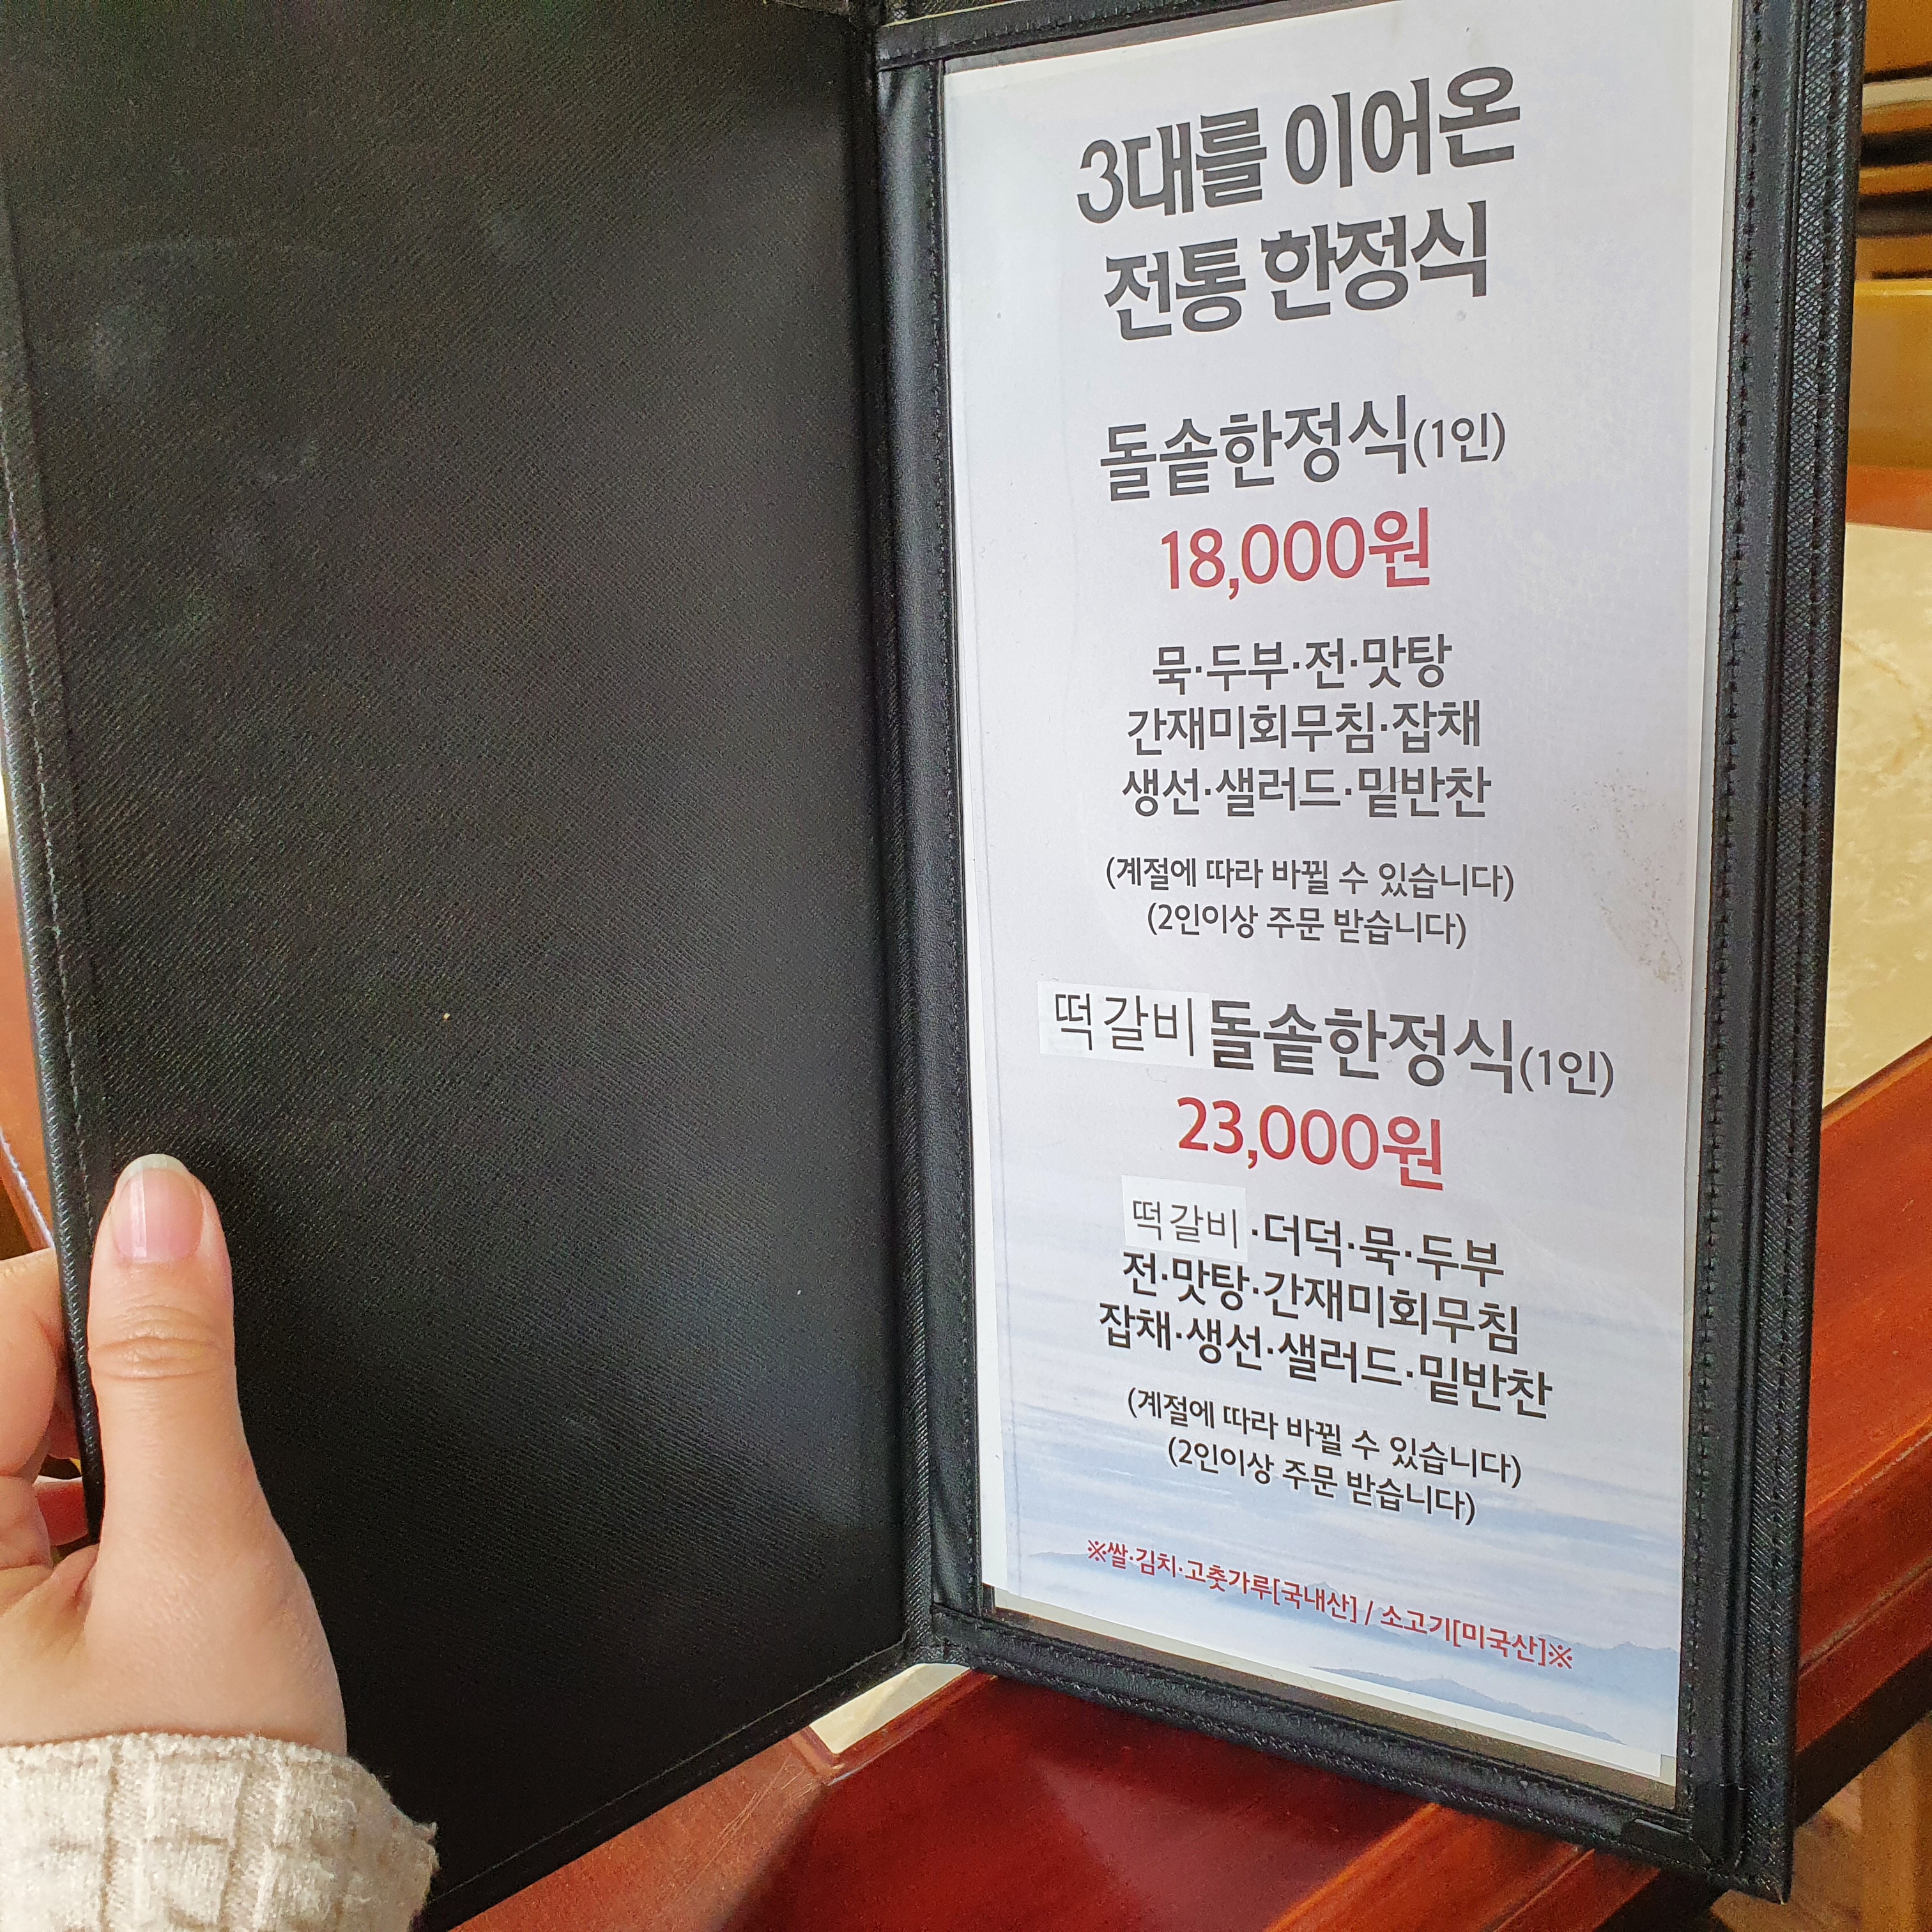 3대를 이어온
전통 한정식
돌솥한정식(1인)
18,000원
묵·두부·전·맛탕
간재미회무침·잡채
생선·샐러드·밑반찬
(계절에 따라 바뀔 수 있습니다)
(2인이상 주문 받습니다)
떡갈비 돌솥한정식(1인)
23,000원
떡갈비·더덕·묵·두부
전·맛탕·간재미회무침
잡채·생선·샐러드·밑반찬
(계절에 따라 바뀔 수 있습니다)
(2인이상 주문 받습니다)
※쌀·김치·고춧가루[국내산] / 소고기[미국산]※